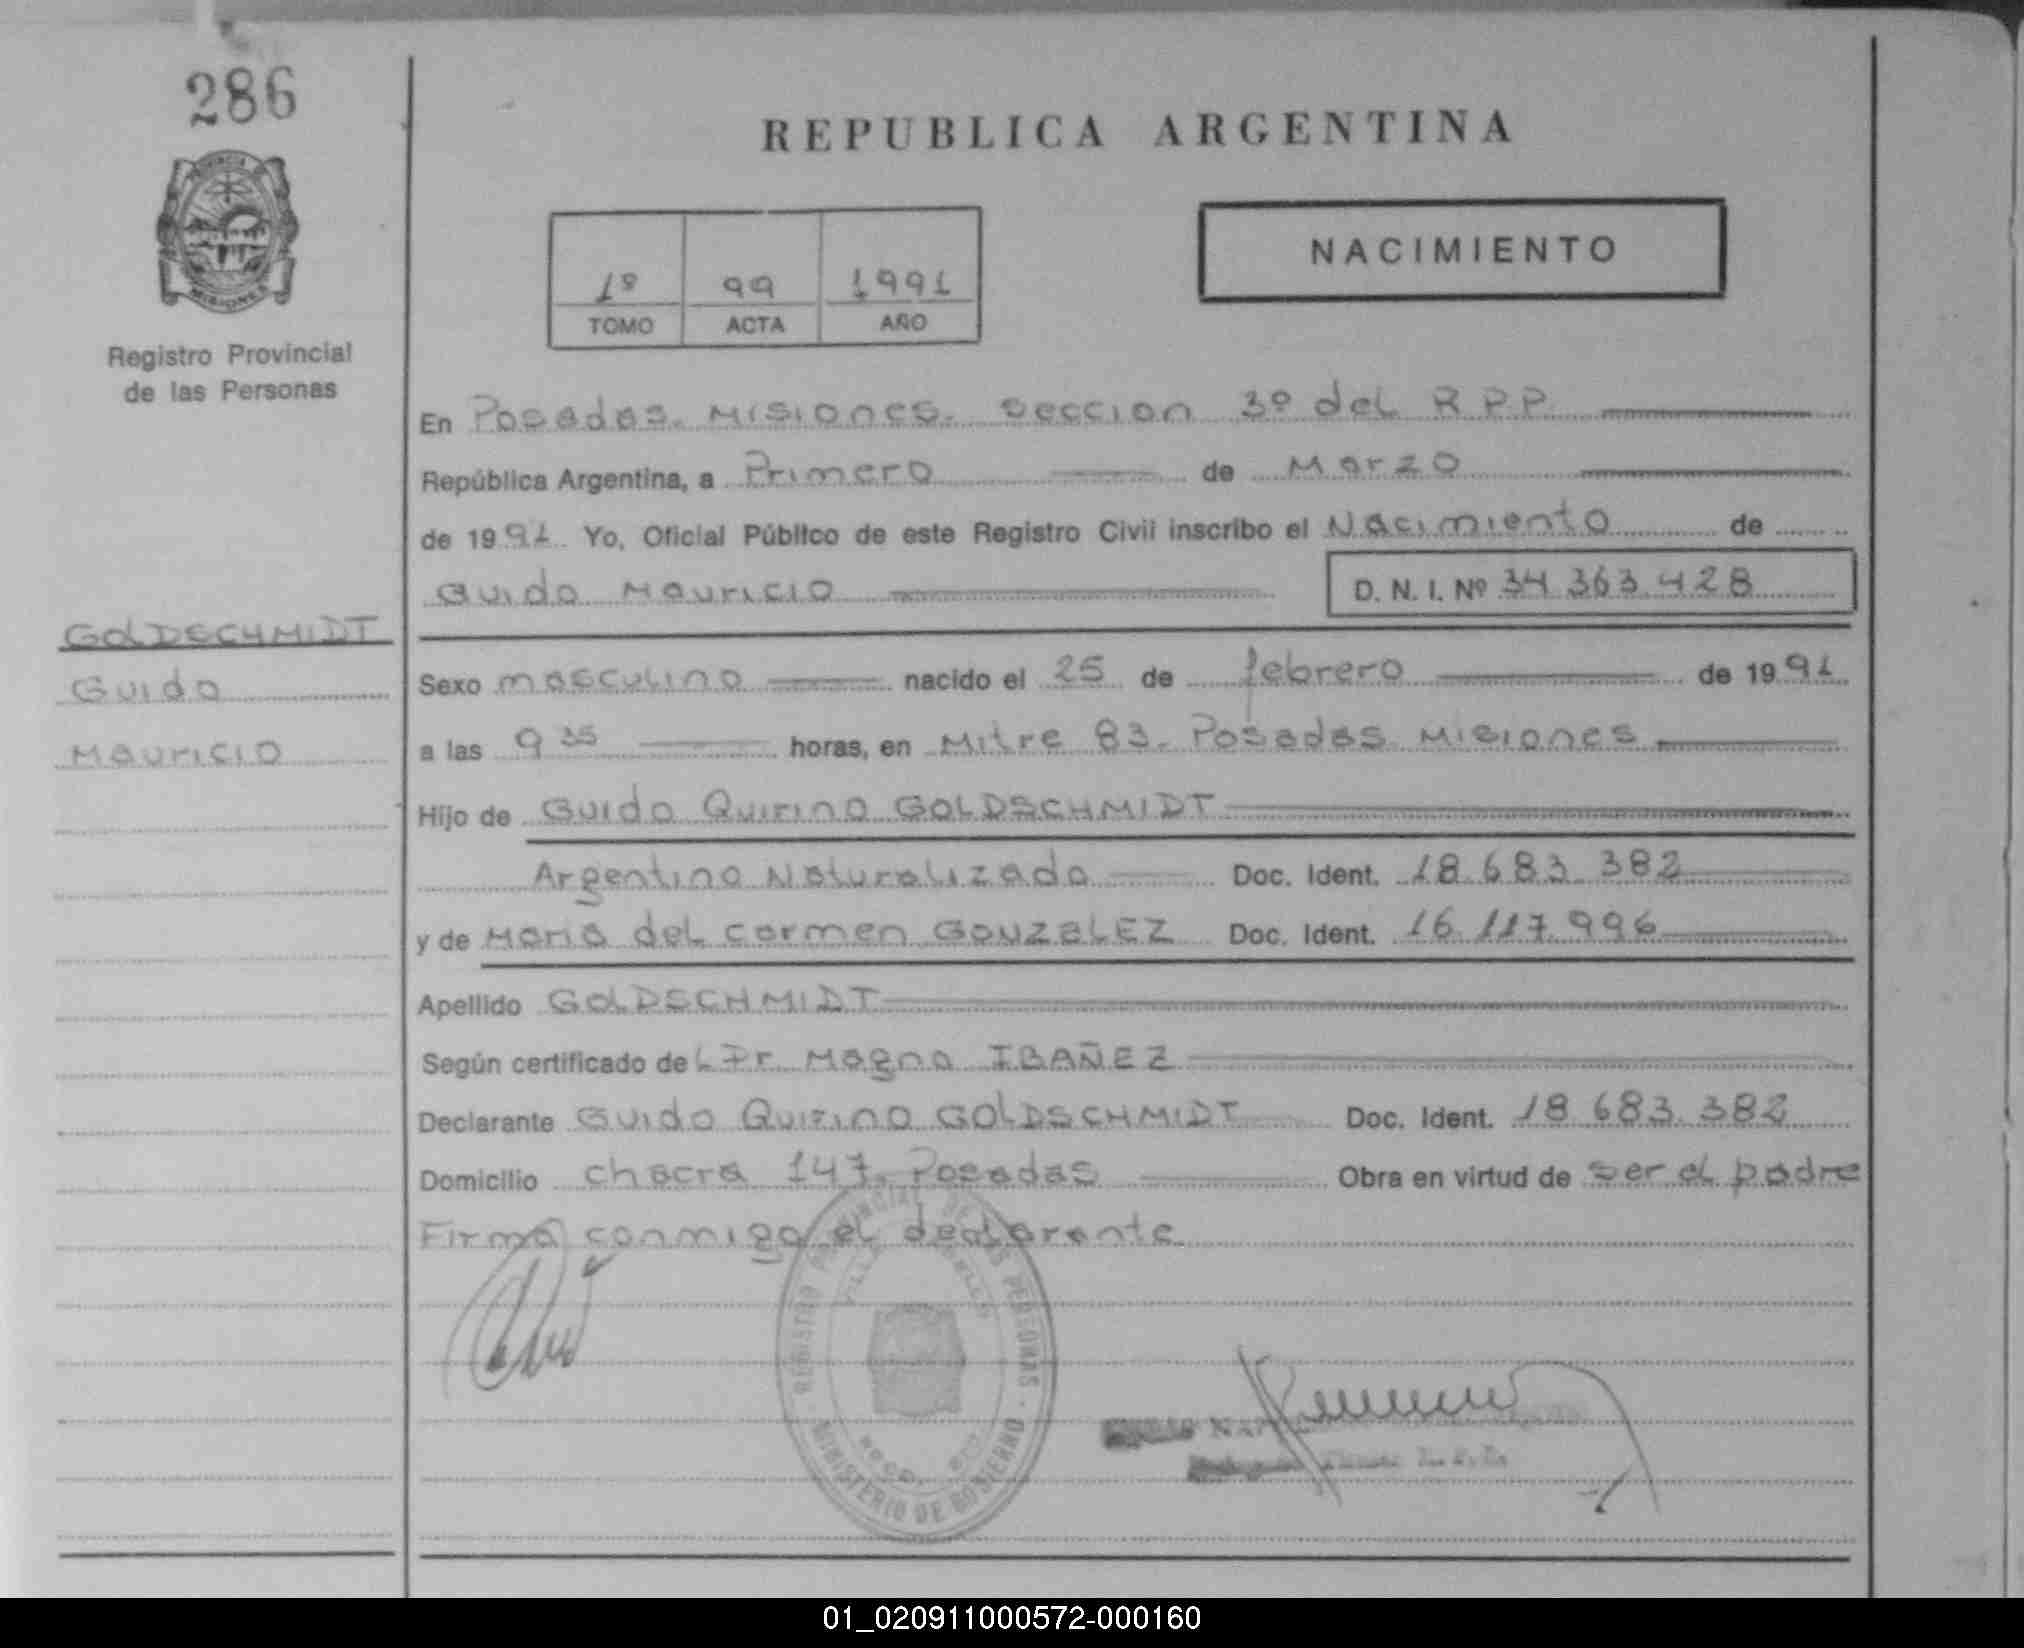 286
PROVINCIA
MISIONES
Registro Provincial
de las Personas
GOLDSCHMIDT
Guido
Mauricio
REPUBLICA ARGENTINA
1º 99 1991
TOMO ACTA AÑO
NACIMIENTO
En Posadas. Misiones. seccion 3º del R P P
República Argentina, a Primero de Marzo
de 1991 Yo, Oficial Público de este Registro Civil inscribo el Nacimiento de
Guido Mauricio D. N. I. Nº 34 363 428
Sexo masculino nacido el 25 de febrero de 1991
a las 9 35 horas, en Mitre 83. Posadas Misiones
Hijo de Guido Quirino GOLDSCHMIDT
Argentino Naturalizado Doc. Ident. 18 683 382
y de Maria del carmen GONZALEZ Doc. Ident. 16 117 996
Apellido GOLDSCHMIDT
Según certificado del Dr. Magno IBAÑEZ
Declarante Guido Quirino GOLDSCHMIDT Doc. Ident. 18 683 382
Domicilio chacra 147. Posadas Obra en virtud de ser el padre
Firma conmigo el declarante
REGISTRO PROVINCIAL DE LAS PERSONAS
MINISTERIO DE GOBIERNO
01_020911000572-000160